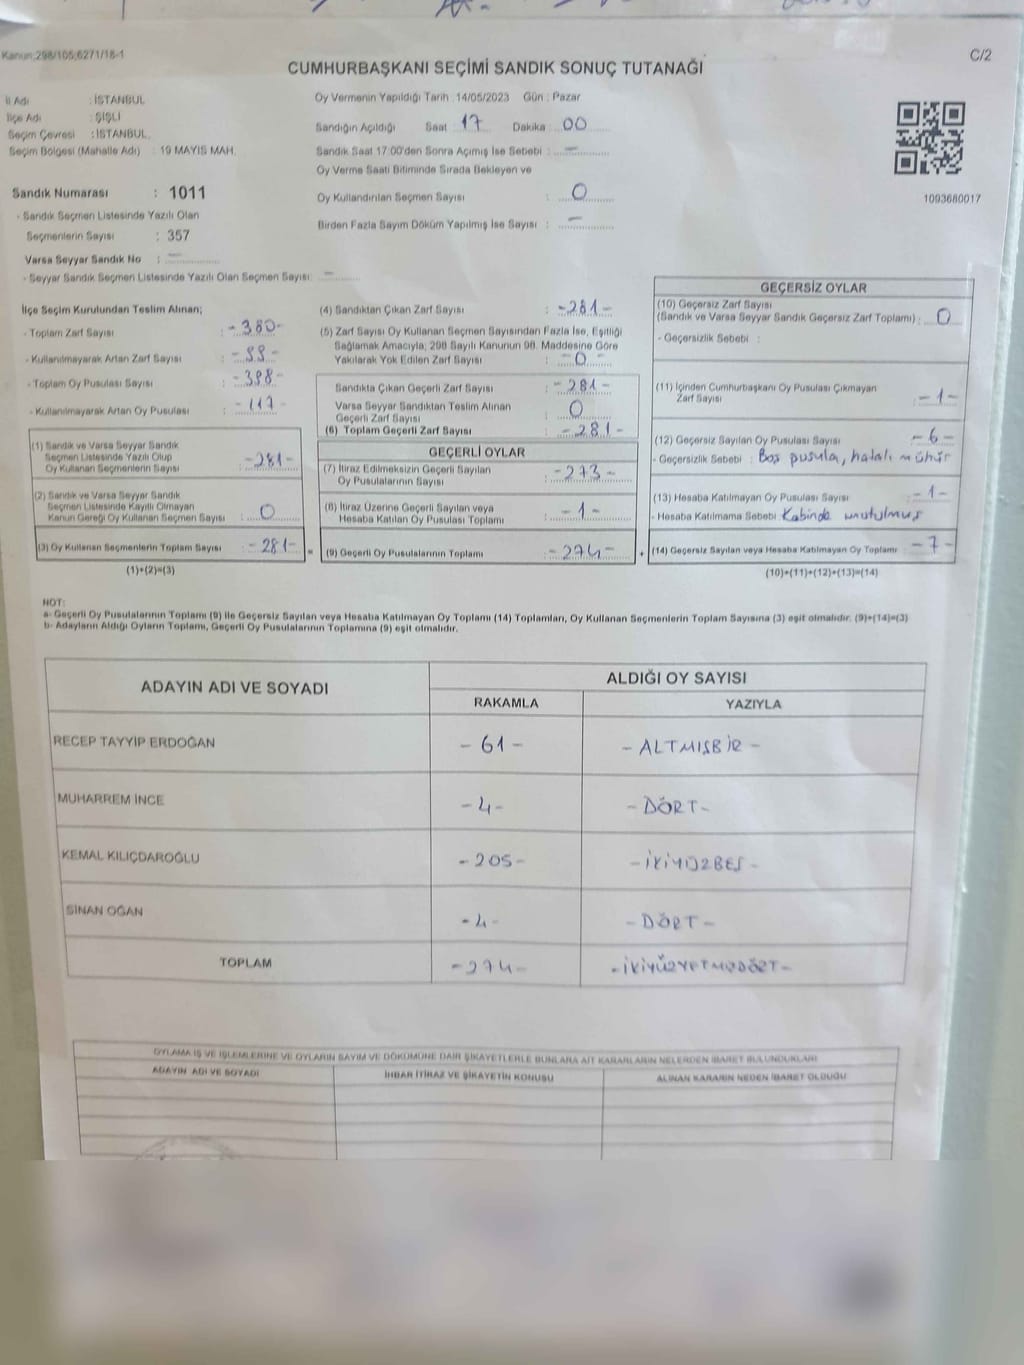 Kanun;298/105;6271/18-1
C/2
CUMHURBAŞKANI SEÇİMİ SANDIK SONUÇ TUTANAĞI
İl Adı : İSTANBUL
İlçe Adı : ŞİŞLİ
Seçim Çevresi : İSTANBUL.
Seçim Bölgesi (Mahalle Adı) : 19 MAYIS MAH.
Oy Vermenin Yapıldığı Tarih :14/05/2023 Gün : Pazar
Sandığın Açıldığı Saat : 17 Dakika : 00
Sandık Saat 17:00'den Sonra Açımış İse Sebebi : —
Oy Verme Saati Bitiminde Sırada Bekleyen ve
Oy Kullandırılan Seçmen Sayısı : 0
Birden Fazla Sayım Döküm Yapılmış İse Sayısı : —
1093680017
Sandık Numarası : 1011
- Sandık Seçmen Listesinde Yazılı Olan
Seçmenlerin Sayısı : 357
Varsa Seyyar Sandık No : —
- Seyyar Sandık Seçmen Listesinde Yazılı Olan Seçmen Sayısı: —
İlçe Seçim Kurulundan Teslim Alınan;
- Toplam Zarf Sayısı : -380-
- Kullanılmayarak Artan Zarf Sayısı : -99-
- Toplam Oy Pusulası Sayısı : -398-
- Kullanılmayarak Artan Oy Pusulası : -117-
(1) Sandık ve Varsa Seyyar Sandık
Seçmen Listesinde Yazılı Olup
Oy Kullanan Seçmenlerin Sayısı -281-
(2) Sandık ve Varsa Seyyar Sandık
Seçmen Listesinde Kayıtlı Olmayan
Kanun Gereği Oy Kullanan Seçmen Sayısı : 0
(3) Oy Kullanan Seçmenlerin Toplam Sayısı -281- =
(1)+(2)=(3)
(4) Sandıktan Çıkan Zarf Sayısı : -281-
(5) Zarf Sayısı Oy Kullanan Seçmen Sayısından Fazla İse, Eşitliği
Sağlamak Amacıyla; 298 Sayılı Kanunun 98. Maddesine Göre
Yakılarak Yok Edilen Zarf Sayısı : -0-
Sandıkta Çıkan Geçerli Zarf Sayısı : -281-
Varsa Seyyar Sandıktan Teslim Alınan
Geçerli Zarf Sayısı : 0
(6) Toplam Geçerli Zarf Sayısı : -281-
GEÇERLİ OYLAR
(7) İtiraz Edilmeksizin Geçerli Sayılan
Oy Pusulalarının Sayısı : -273-
(8) İtiraz Üzerine Geçerli Sayılan veya
Hesaba Katılan Oy Pusulası Toplamı : -1-
(9) Geçerli Oy Pusulalarının Toplamı : -274- +
GEÇERSİZ OYLAR
(10) Geçersiz Zarf Sayısı
(Sandık ve Varsa Seyyar Sandık Geçersiz Zarf Toplamı) : 0
- Geçersizlik Sebebi :
(11) İçinden Cumhurbaşkanı Oy Pusulası Çıkmayan
Zarf Sayısı : -1-
(12) Geçersiz Sayılan Oy Pusulası Sayısı : -6-
- Geçersizlik Sebebi : Boş pusula, hatalı mühür
(13) Hesaba Katılmayan Oy Pusulası Sayısı : -1-
- Hesaba Katılmama Sebebi : Kabinde unutulmuş
(14) Geçersiz Sayılan veya Hesaba Katılmayan Oy Toplamı : -7-
(10)+(11)+(12)+(13)=(14)
NOT:
a- Geçerli Oy Pusulalarının Toplamı (9) ile Geçersiz Sayılan veya Hesaba Katılmayan Oy Toplamı (14) Toplamları, Oy Kullanan Seçmenlerin Toplam Sayısına (3) eşit olmalıdır. (9)+(14)=(3)
b- Adayların Aldığı Oyların Toplamı, Geçerli Oy Pusulalarının Toplamına (9) eşit olmalıdır.
ADAYIN ADI VE SOYADI
ALDIĞI OY SAYISI
RAKAMLA YAZIYLA
RECEP TAYYİP ERDOĞAN -61- -ALTMIŞBİR-
MUHARREM İNCE -4- -DÖRT-
KEMAL KILIÇDAROĞLU -205- -İKİYÜZBEŞ-
SİNAN OĞAN -4- -DÖRT-
TOPLAM -274- -İKİYÜZYETMİŞDÖRT-
OYLAMA İŞ VE İŞLEMLERİNE VE OYLARIN SAYIM VE DÖKÜMÜNE DAİR ŞİKAYETLERLE BUNLARA AİT KARARLARIN NELERDEN İBARET BULUNDUKLARI
ADAYIN ADI VE SOYADI İHBAR İTİRAZ VE ŞİKAYETİN KONUSU ALINAN KARARIN NEDEN İBARET OLDUĞU